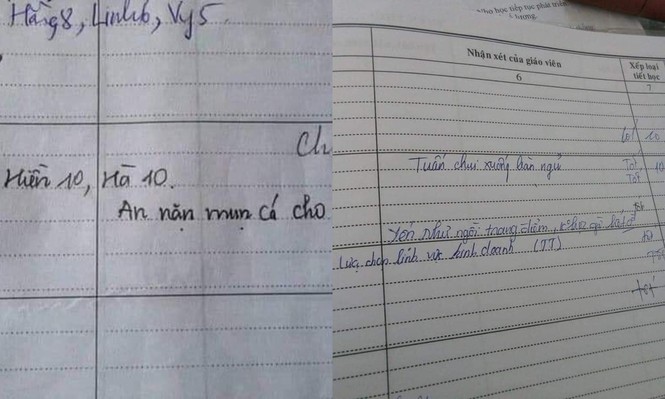 Hằng8, Linh6, Vy5
Ch
Hiền 10, Hà 10.
An nặn mụn cá cho
Nhận xét của giáo viên
Xếp loại
tiết học
6
7
10
Tuấn chui xuống bàn ngủ
Tốt
10
Tốt
Yến Nhi ngồi trang điểm,
Lựa chọn lĩnh vực kinh doanh (TT)
Tốt
tốt